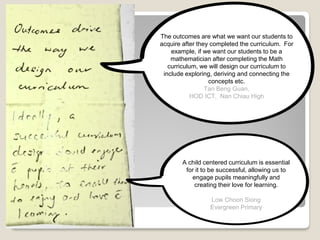 Outcomes drive
the way we
design our
curriculum
Ideally, a
successful curriculum
design should engage
pupils at their
to enable them
to enjoy and love
learning.
The outcomes are what we want our students to
acquire after they completed the curriculum.  For
example, if we want our students to be a
mathematician after completing the Math
curriculum, we will design our curriculum to
include exploring, deriving and connecting the
concepts etc.
Tan Beng Guan,
HOD ICT,  Nan Chiau High
A child centered curriculum is essential
for it to be successful, allowing us to
engage pupils meaningfully and
creating their love for learning.
Low Choon Siong
Evergreen Primary